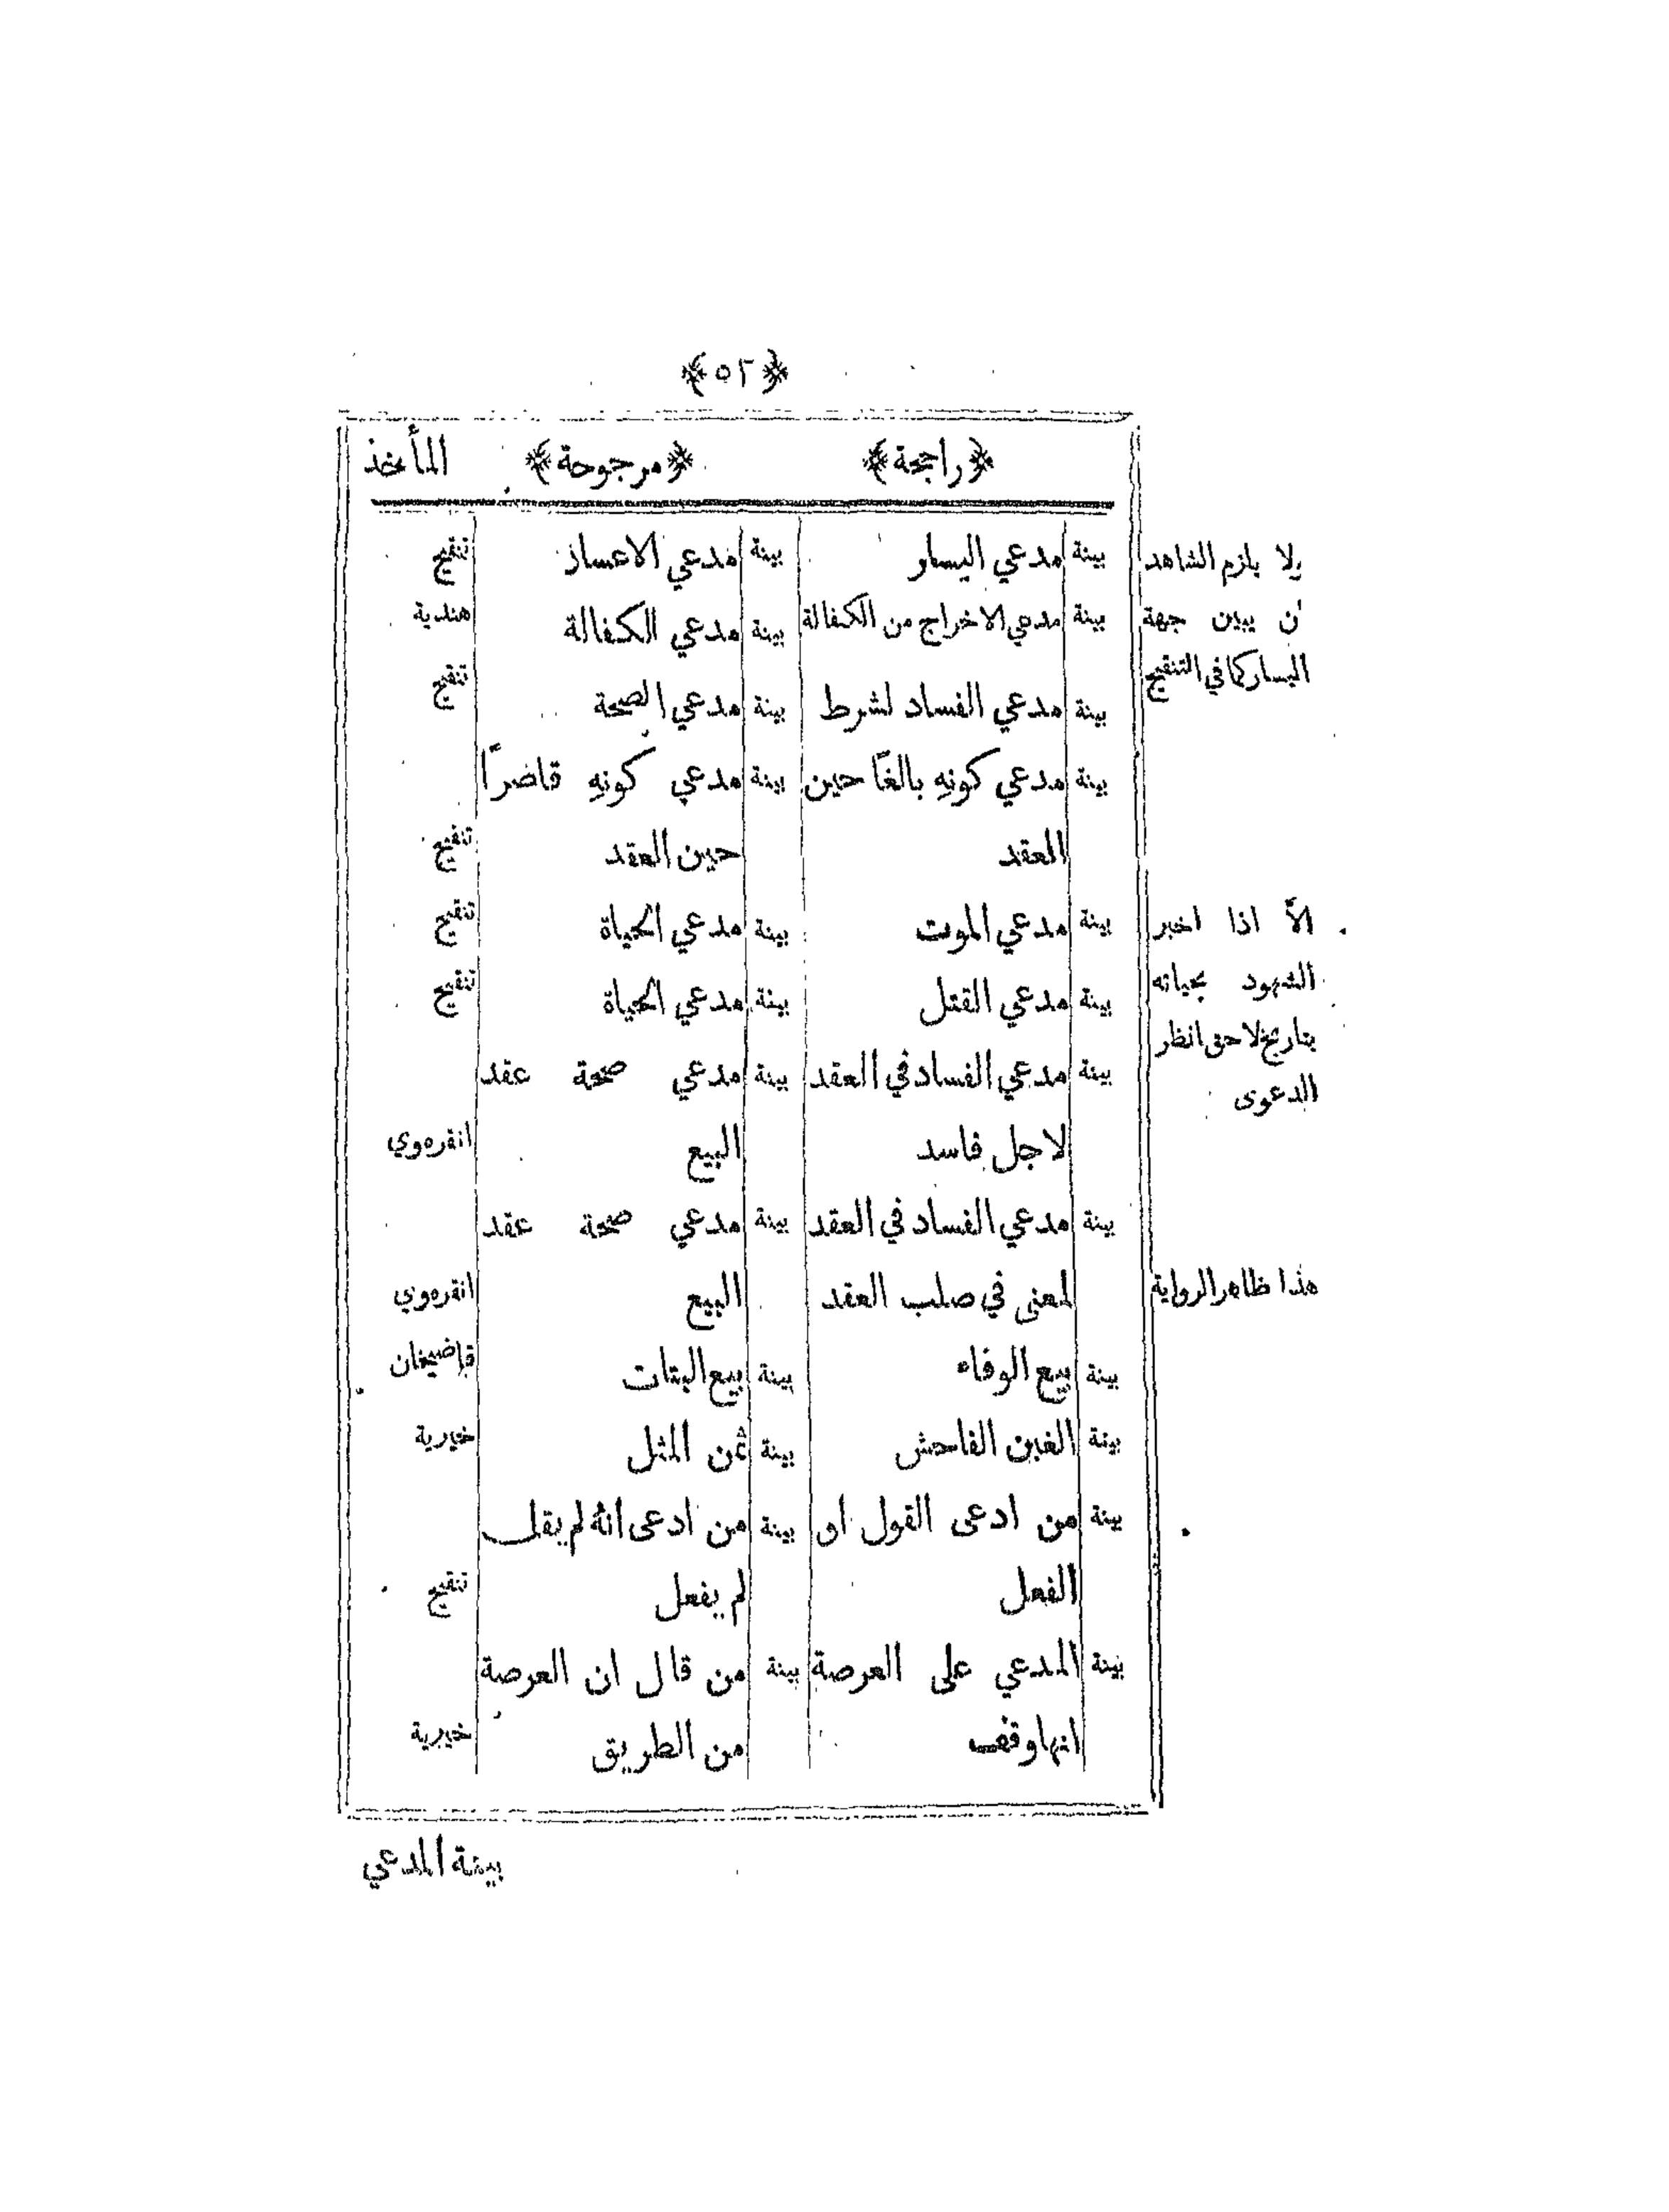 ﴿٥٢﴾
﴿راجحة﴾ ﴿مرجوحة﴾ المأخذ
بينة مدعي اليسار بينة مدعي الاعسار تنقيح
بينة مدعي الاخراج من الكفالة بينة مدعي الكفالة هندية
بينة مدعي الفساد لشرط بينة مدعي الصحة تنقيح
بينة مدعي كونهِ بالغًا حين بينة مدعي كونهِ قاصرًا
العقد حين العقد تنقيح
بينة مدعي الموت بينة مدعي الحياة تنقيح
بينة مدعي القتل بينة مدعي الحياة تنقيح
بينة مدعي الفساد في العقد بينة مدعي صحة عقد
لاجل فاسد البيع انقروي
بينة مدعي الفساد في العقد بينة مدعي صحة عقد
لمعنى في صلب العقد البيع انقروي
بينة بيع الوفاء بينة بيع البتات قاضيخان
بينة الغبن الفاحش بينة ثمن المثل خيرية
بينة من ادعى القول او بينة من ادعى انهُ لم يقل
الفعل لم يفعل تنقيح
بينة المدعي على العرصة بينة من قال ان العرصة
انها وقف من الطريق خيرية
ولا يلزم الشاهد
ان يبين جهة
اليسار كما في التنقيح
الاّ اذا اخبر
الشهود بحياته
بتاريخ لاحق انظر
الدعوى
هذا ظاهر الرواية
بينة المدعي